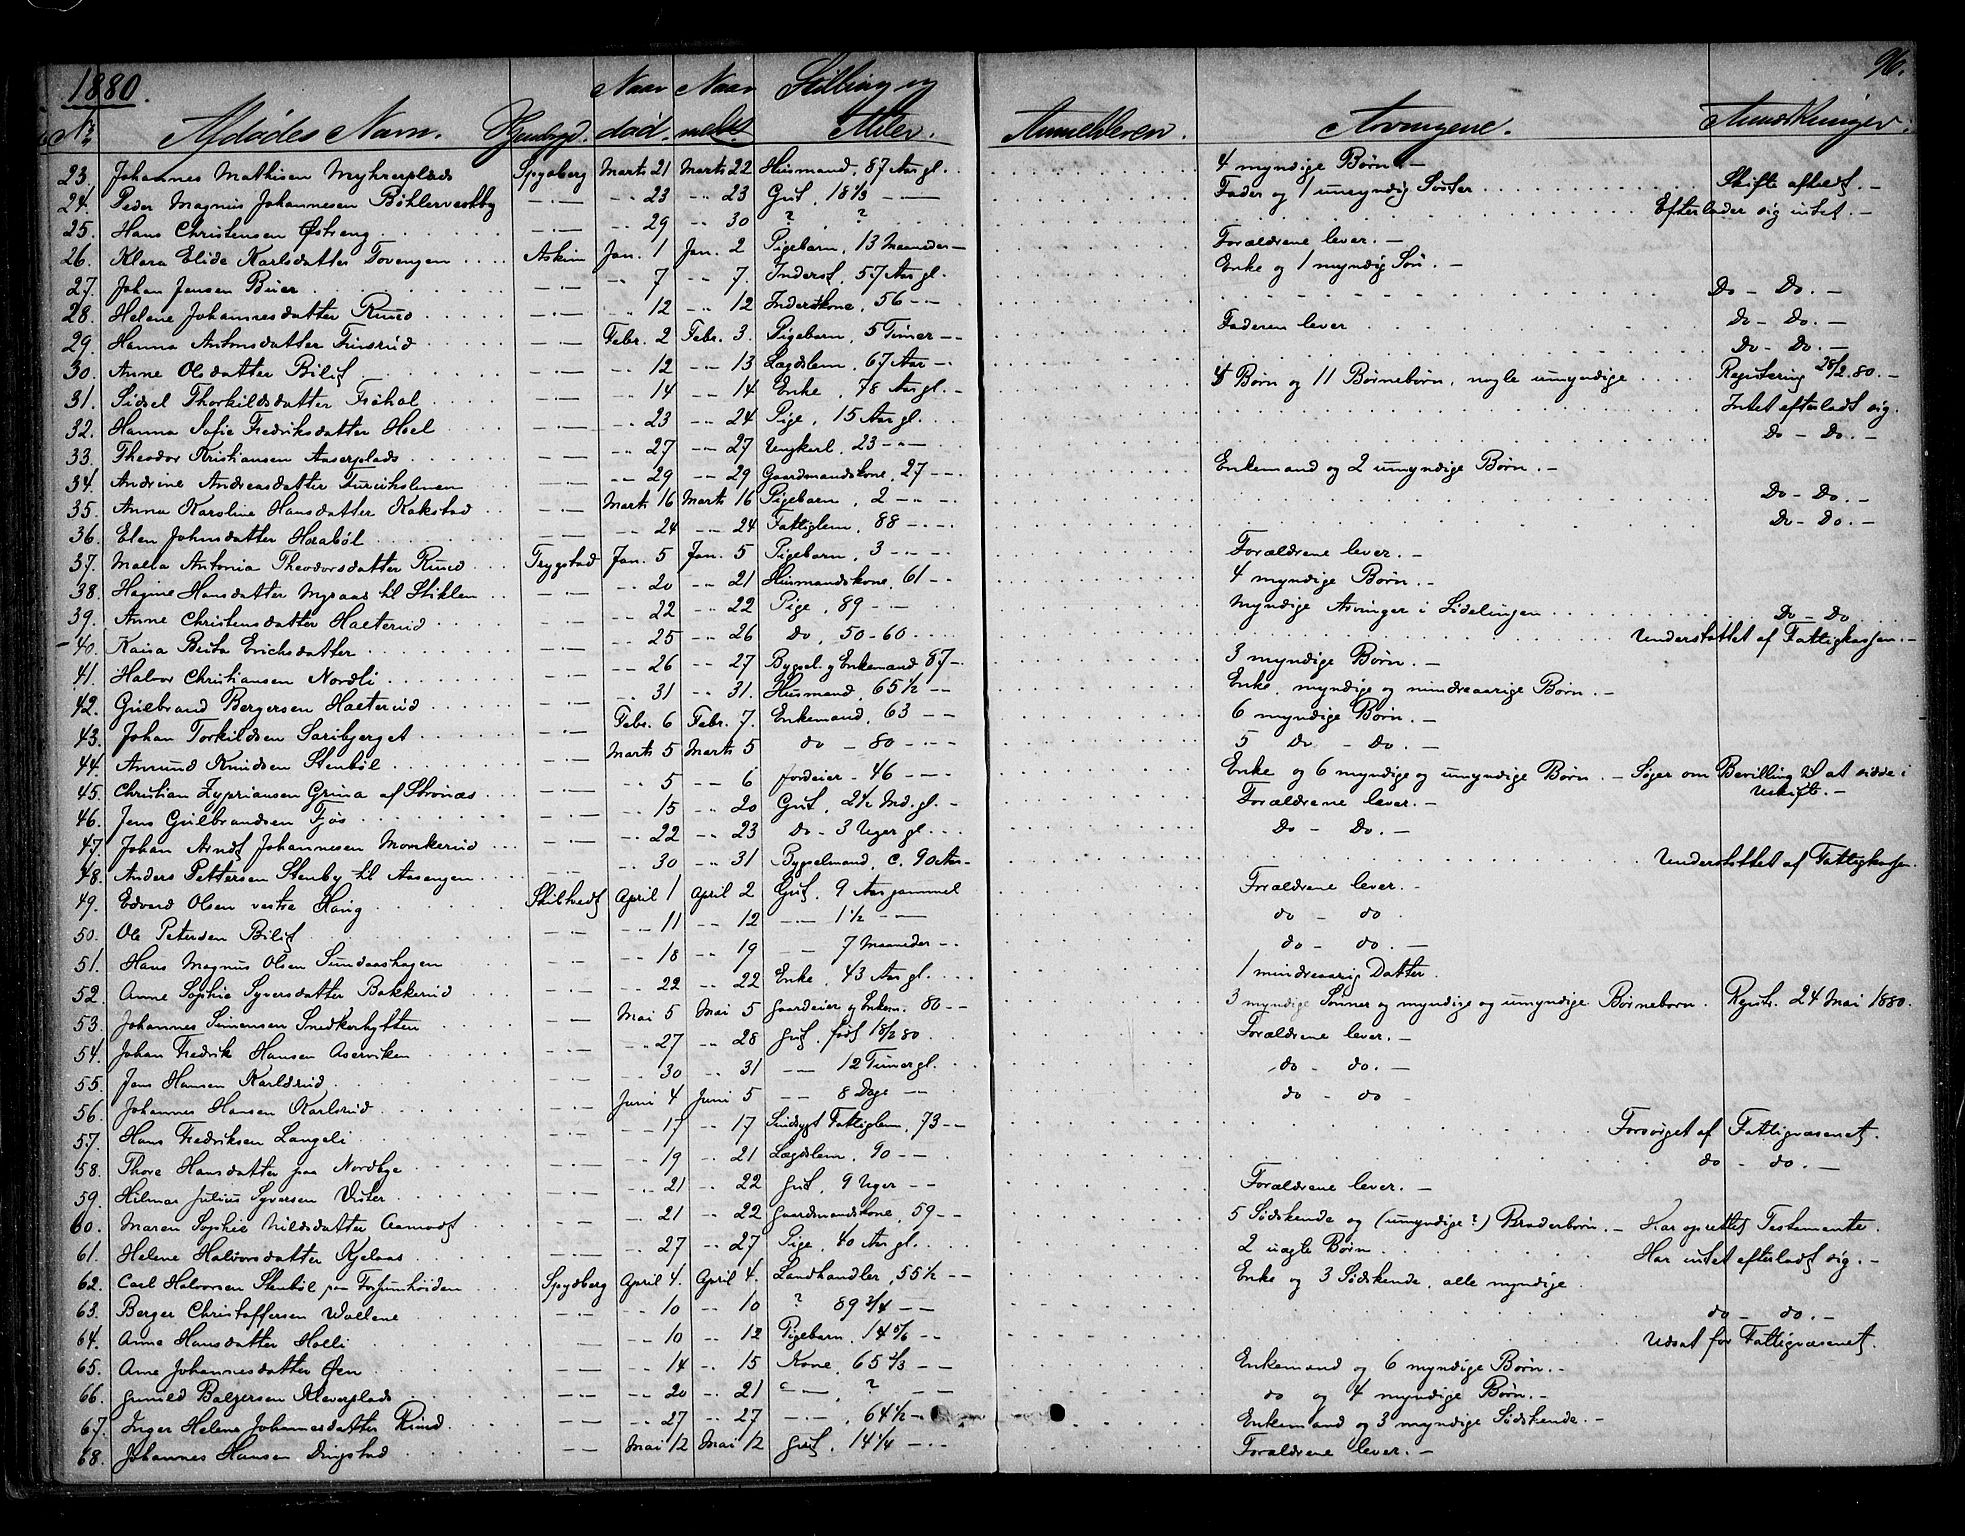 1880. 96.
No Afdødes Navn. Hjembygd. Naar død. Naar meldt. Stilling og Alder. Anmelderen. Arvingene. Anmærkninger.
23. Johannes Mathisen Myhrerplads Spydberg Marts 21 Marts 22 Husmand, 87 Aar gl. 4 myndige Børn. —
24. Peder Magnus Johannesen Böhlervestby —"— " 23 " 23 Gut, 18 1/3 — Fader og 1 umyndig Søster Skifte afholdt. —
25. Hans Christensen Østreng —"— " 29 " 30 ? ? Efterlader sig intet. —
26. Klara Elide Karlsdatter Tovengen Askim Jan. 1 Jan. 2 Pigebarn, 13 Maaneder — Forældrene lever. —
27. Johan Jensen Buer —"— " 7 " 7. Inderst, 57 Aar gl. Enke og 1 myndig Søn. —
28. Helene Johannesdatter Ruud —"— " 12 " 12 Inderstkone, 56 — Do — Do. —
29. Hanna Antonsdatter Finsrud —"— Febr. 2 Febr. 3. Pigebarn, 5 Timer — Faderen lever Do — Do. —
30. Anne Olsdatter Bilit —"— " 12 " 13 Lægdslem, 67 Aar — Do — Do. —
31. Sidsel Thorkildsdatter Frøhol —"— " 14 " 14 Enke, 78 Aar gl. — 4 Børn og 11 Børnebørn, nogle umyndige Registering 28/2.80. —
32. Hanna Sofie Fredriksdatter Hoel —"— " 23 " 24 Pige, 15 Aar gl. Intet efterladt sig.
33. Theodor Kristiansen Aaserplads —"— " 27 " 27 Ungkarl, 23 — Do — Do. —
34. Andrine Andreasdatter —"— " 29 " 29 Gaardmandskone, 27 — Enkemand og 2 umyndige Børn. —
35. Anna Karoline Hansdatter Kakstad —"— Marts 16 Marts 16 Pigebarn, 2 — Do — Do. —
36. Elen Johnsdatter Haraböl —"— " 24 " 24 Fattiglem, 88 — Do — Do. —
37. Malla Antonia Theodorsdatter Ruud Trygstad Jan. 5 Jan. 5 Pigebarn, 3 — Forældrene lever. —
38. Hagine Hansdatter Mysaas til Stiklen —"— " 20 " 21 Husmandskone, 61 — 4 myndige Børn. —
39. Anne Christensdatter Haeterud —"— " 22 " 22 Pige, 89 — Myndige Arvinger i Sidelinjen Do — Do
40. Kaisa Brita Erichsdatter —"— " 25 " 26 do, 50-60 Understøttet af Fattigkassen. —
41. Halvor Christiansen Nordli —"— " 26 " 27 Bygsel. og Enkemand 87 — 3 myndige Børn. —
42. Gulbrand Bergersen Haeterud —"— " 31 " 31. Husmand, 65 1/2 — Enke, myndige og mindreaarige Børn. —
43. Johan Torkildsen Saribjerget —"— Febr. 6 Febr. 7. Enkemand, 63 — 6 myndige Børn. —
44. Amund Knudsen Stenböl —"— Marts 5 Marts 5 do — 80 — 5 Do. — Do. —
45. Christian Zypriansen Grina af Strønæs —"— " 5 " 6 Jordeier — 46 — Enke og 6 myndige og umyndige Børn. — Søger om Bevilling til at sidde i Uskifte. —
46. Jens Gulbrandsen Fjøs —"— " 15 " 20 Gut, 2 1/2 Md. gl. — Forældrene lever. —
47. Johan Arndt Johannesen Monkerud —"— " 22 " 23 do — 3 Uger gl. Do — Do. —
48. Anders Pettersen Stenby til Aasengen —"— " 30 " 31 Bygselmand, c. 90 Aar — Understøttet af Fattigkassen
49. Edvard Olsen vestre Haug Skibtvedt April 1 April 2 Gut, 9 Aar gammel Forældrene lever. —
50. Ole Petersen Bilit —"— " 11 " 12 — 1 1/2 — do — do.
51. Hans Magnus Olsen Sundaashagen —"— " 18 " 19 — 7 Maaneder — do — do. —
52. Anne Sophie Syversdatter Bakkerud —"— " 22 " 22 Enke, 43 Aar gl. 1 mindreaarig Datter.
53. Johannes Simensen Snedkerhytten —"— Mai 5 Mai 5 Gaardeier og Enkem. 80 — 3 myndige Sønner og myndige og umyndige Børnebørn. Registr. 24 Mai 1880.
54. Johan Fredrik Hansen Aserviken —"— " 27 " 28 Gut, født 18/2 80 Forældrene lever. —
55. Jens Hansen Karlsrud —"— " 30 " 31 — 12 Timer gl. do — do. —
56. Johannes Hansen Karlsrud —"— Juni 4 Juni 5 — 8 Dage — do — do —
57. Hans Fredriksen Langeli —"— " 17 " 17 Sindsygt Fattiglem, 73 — Forsørget af Fattigvæsenet.
58. Thore Hansdatter paa Nordbye —"— " 19 " 21 Lægdslem, 90 — do — do. —
59. Hilmar Julius Syversen Vister —"— " 21 " 22 Gut, 9 Uger — Forældrene lever. —
60. Maren Sophie Nilsdatter Aamodt —"— " 21 " 22 Gaardmandskone, 59 — 5 Sødskende og (umyndige?) Broderbørn. — Har oprettet Testamente.
61. Helene Halvorsdatter Kjelaas —"— " 27 " 27 Pige, 40 Aar gl. 2 uægte Børn Har intet efterladt sig. —
62. Carl Halvorsen Stenböl paa Spydberg April 4. April 4. Landhandler, 55 1/2 — Enke og 3 Sødskende, alle myndige
63. Berger Christoffersen Wollene —"— " 10 " 10 ? 89 3/4 — do — do. —
64. Anna Hansdatter Holli —"— " 10 " 12 Pigebarn, 14 5/6 — Udsat for Fattigvæsenet.
65. Ane Johannesdatter Øen —"— " 14 " 15 Kone, 65 2/3 — Enkemand og 6 myndige Børn. —
66. Gunild Balzersen Kleverplads —"— " 20 " 21 —"—, ? — do og 4 myndige Børn. —
67. Inger Helene Johannesdatter Ruud —"— " 27 " 27 —"—, 64 1/2 — Enkemand og 3 myndige Sødskende. —
68. Johannes Hansen Dingstad —"— Mai 12 Mai 12 Gut, 14 1/4 — Forældrene lever. —